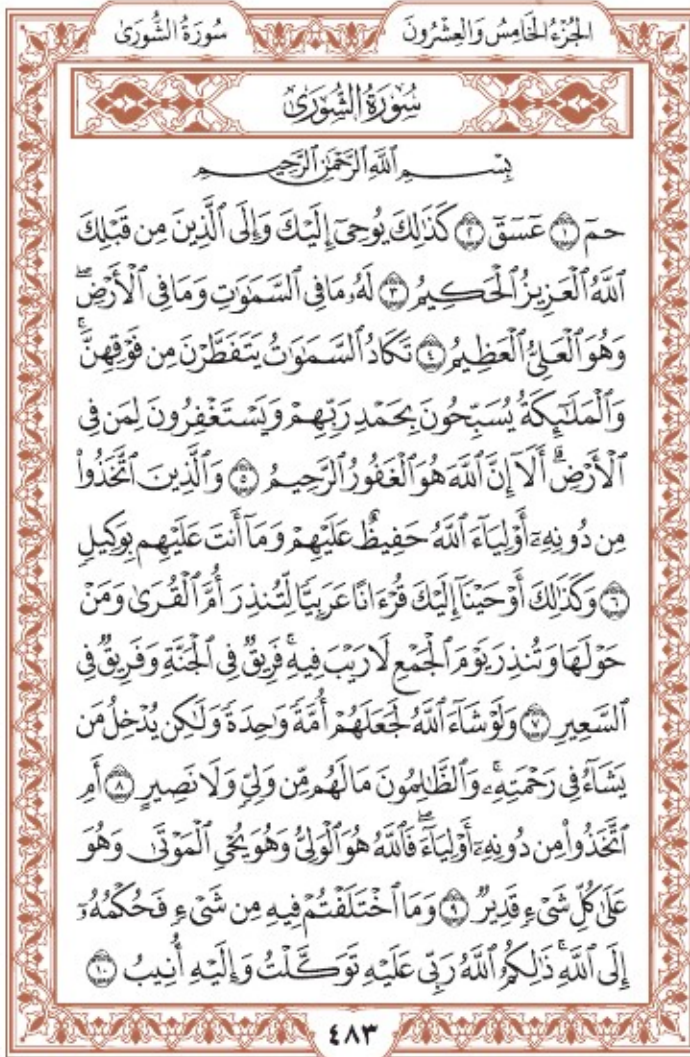 الجُزْءُ الخَامِسُ وَالعِشْرُونَ سُورَةُ الشُّورَىٰ
سُورَةُ الشُّورَىٰ
بِسْمِ ٱللَّهِ ٱلرَّحْمَٰنِ ٱلرَّحِيمِ
حمٓ ۝١ عٓسٓقٓ ۝٢ كَذَٰلِكَ يُوحِىٓ إِلَيْكَ وَإِلَى ٱلَّذِينَ مِن قَبْلِكَ
ٱللَّهُ ٱلْعَزِيزُ ٱلْحَكِيمُ ۝٣ لَهُۥ مَا فِى ٱلسَّمَٰوَٰتِ وَمَا فِى ٱلْأَرْضِ ۖ
وَهُوَ ٱلْعَلِىُّ ٱلْعَظِيمُ ۝٤ تَكَادُ ٱلسَّمَٰوَٰتُ يَتَفَطَّرْنَ مِن فَوْقِهِنَّ ۚ
وَٱلْمَلَٰٓئِكَةُ يُسَبِّحُونَ بِحَمْدِ رَبِّهِمْ وَيَسْتَغْفِرُونَ لِمَن فِى
ٱلْأَرْضِ ۗ أَلَآ إِنَّ ٱللَّهَ هُوَ ٱلْغَفُورُ ٱلرَّحِيمُ ۝٥ وَٱلَّذِينَ ٱتَّخَذُوا۟
مِن دُونِهِۦٓ أَوْلِيَآءَ ٱللَّهُ حَفِيظٌ عَلَيْهِمْ وَمَآ أَنتَ عَلَيْهِم بِوَكِيلٍ
۝٦ وَكَذَٰلِكَ أَوْحَيْنَآ إِلَيْكَ قُرْءَانًا عَرَبِيًّا لِّتُنذِرَ أُمَّ ٱلْقُرَىٰ وَمَنْ
حَوْلَهَا وَتُنذِرَ يَوْمَ ٱلْجَمْعِ لَا رَيْبَ فِيهِ ۚ فَرِيقٌ فِى ٱلْجَنَّةِ وَفَرِيقٌ فِى
ٱلسَّعِيرِ ۝٧ وَلَوْ شَآءَ ٱللَّهُ لَجَعَلَهُمْ أُمَّةً وَٰحِدَةً وَلَٰكِن يُدْخِلُ مَن
يَشَآءُ فِى رَحْمَتِهِۦ ۚ وَٱلظَّٰلِمُونَ مَا لَهُم مِّن وَلِىٍّ وَلَا نَصِيرٍ ۝٨ أَمِ
ٱتَّخَذُوا۟ مِن دُونِهِۦٓ أَوْلِيَآءَ ۖ فَٱللَّهُ هُوَ ٱلْوَلِىُّ وَهُوَ يُحْىِ ٱلْمَوْتَىٰ وَهُوَ
عَلَىٰ كُلِّ شَىْءٍ قَدِيرٌ ۝٩ وَمَا ٱخْتَلَفْتُمْ فِيهِ مِن شَىْءٍ فَحُكْمُهُۥٓ
إِلَى ٱللَّهِ ۚ ذَٰلِكُمُ ٱللَّهُ رَبِّى عَلَيْهِ تَوَكَّلْتُ وَإِلَيْهِ أُنِيبُ ۝١٠
٤٨٣